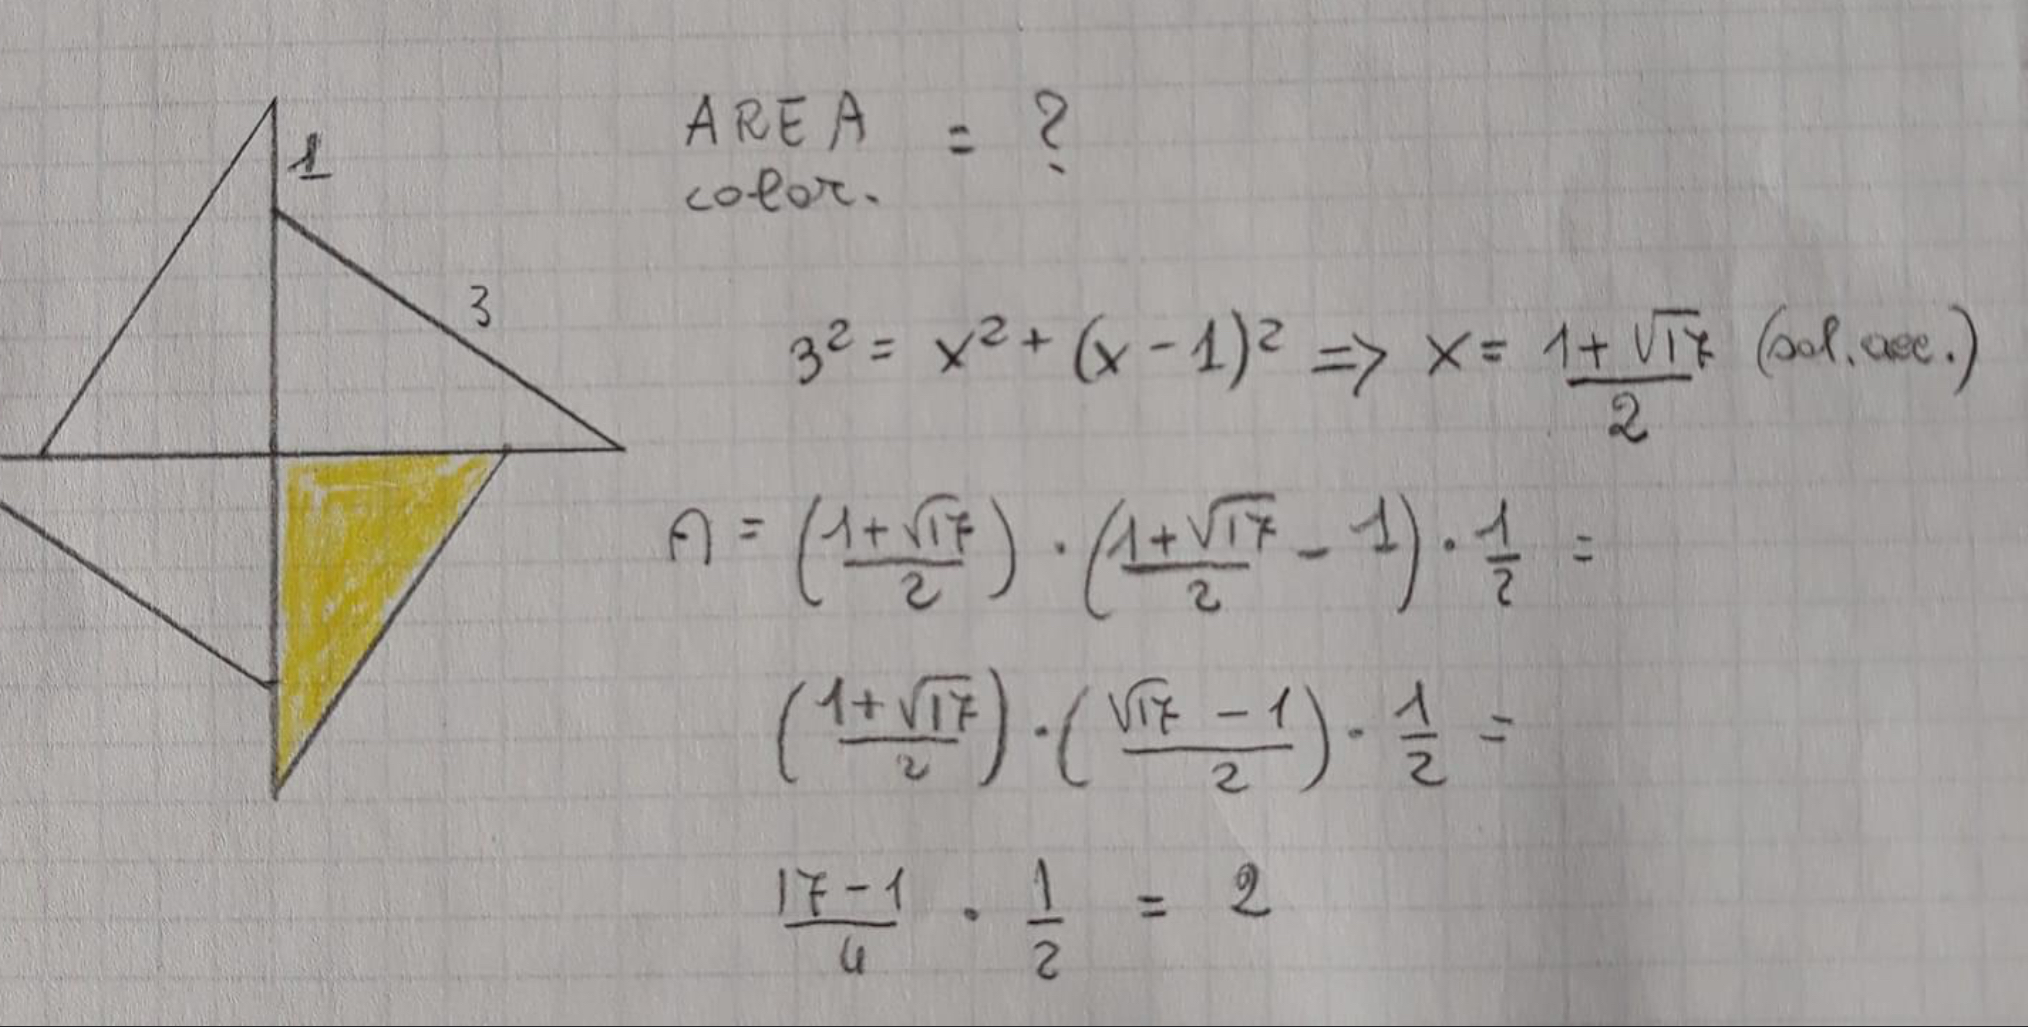 1
AREA = ?
color.
3
3² = x² + (x - 1)² => x = (1 + √17)/2 (sol. acc.)
A = ((1 + √17)/2) · ((1 + √17)/2 - 1) · 1/2 =
((1 + √17)/2) · ((√17 - 1)/2) · 1/2 =
(17 - 1)/4 · 1/2 = 2